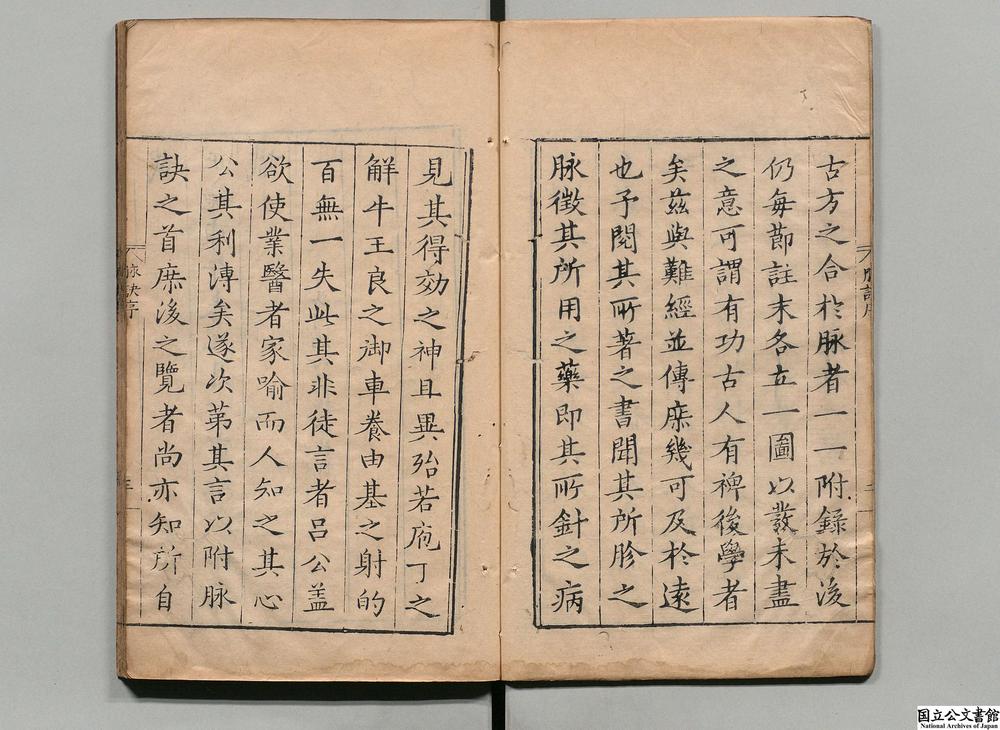 古方之合於脉者一一附録於後
仍每節註末各立一圖以發未盡
之意可謂有功古人有裨後學者
矣兹與難經並傳庶幾可及於遠
也予閱其所著之書聞其所胗之
脉徵其所用之藥即其所針之病
見其得効之神且異殆若庖丁之
解牛王良之御車養由基之射的
百無一失此其非徒言者吕公盖
欲使業醫者家喻而人知之其心
公其利溥矣遂次苐其言以附脉
訣之首庶後之覽者尚亦知所自
脉訣序
三
国立公文書館
National Archives of Japan